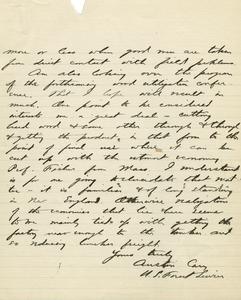 more or less when good men are taken
from direct contact with field problems
Am also looking over the program
of the forthcoming wood utilization confer-
ence. That I hope will result in
much. One point to be considered
interests me a great deal - cutting
hard wood & some thru through & through
& getting the product in that form to the
point of final use where it can be
cut up with the utmost economy
Prof. Fisher from Mass I understand
is to go & elucidate that mat-
ter - it is familiar & of long standing
in New England. Otherwise realization
of the economies that lie here seems
to me mainly tied up with getting the
factory near enough to the timber and
so reducing lumber freight.
Yours truly
Austin Cary
U.S. Forest Service